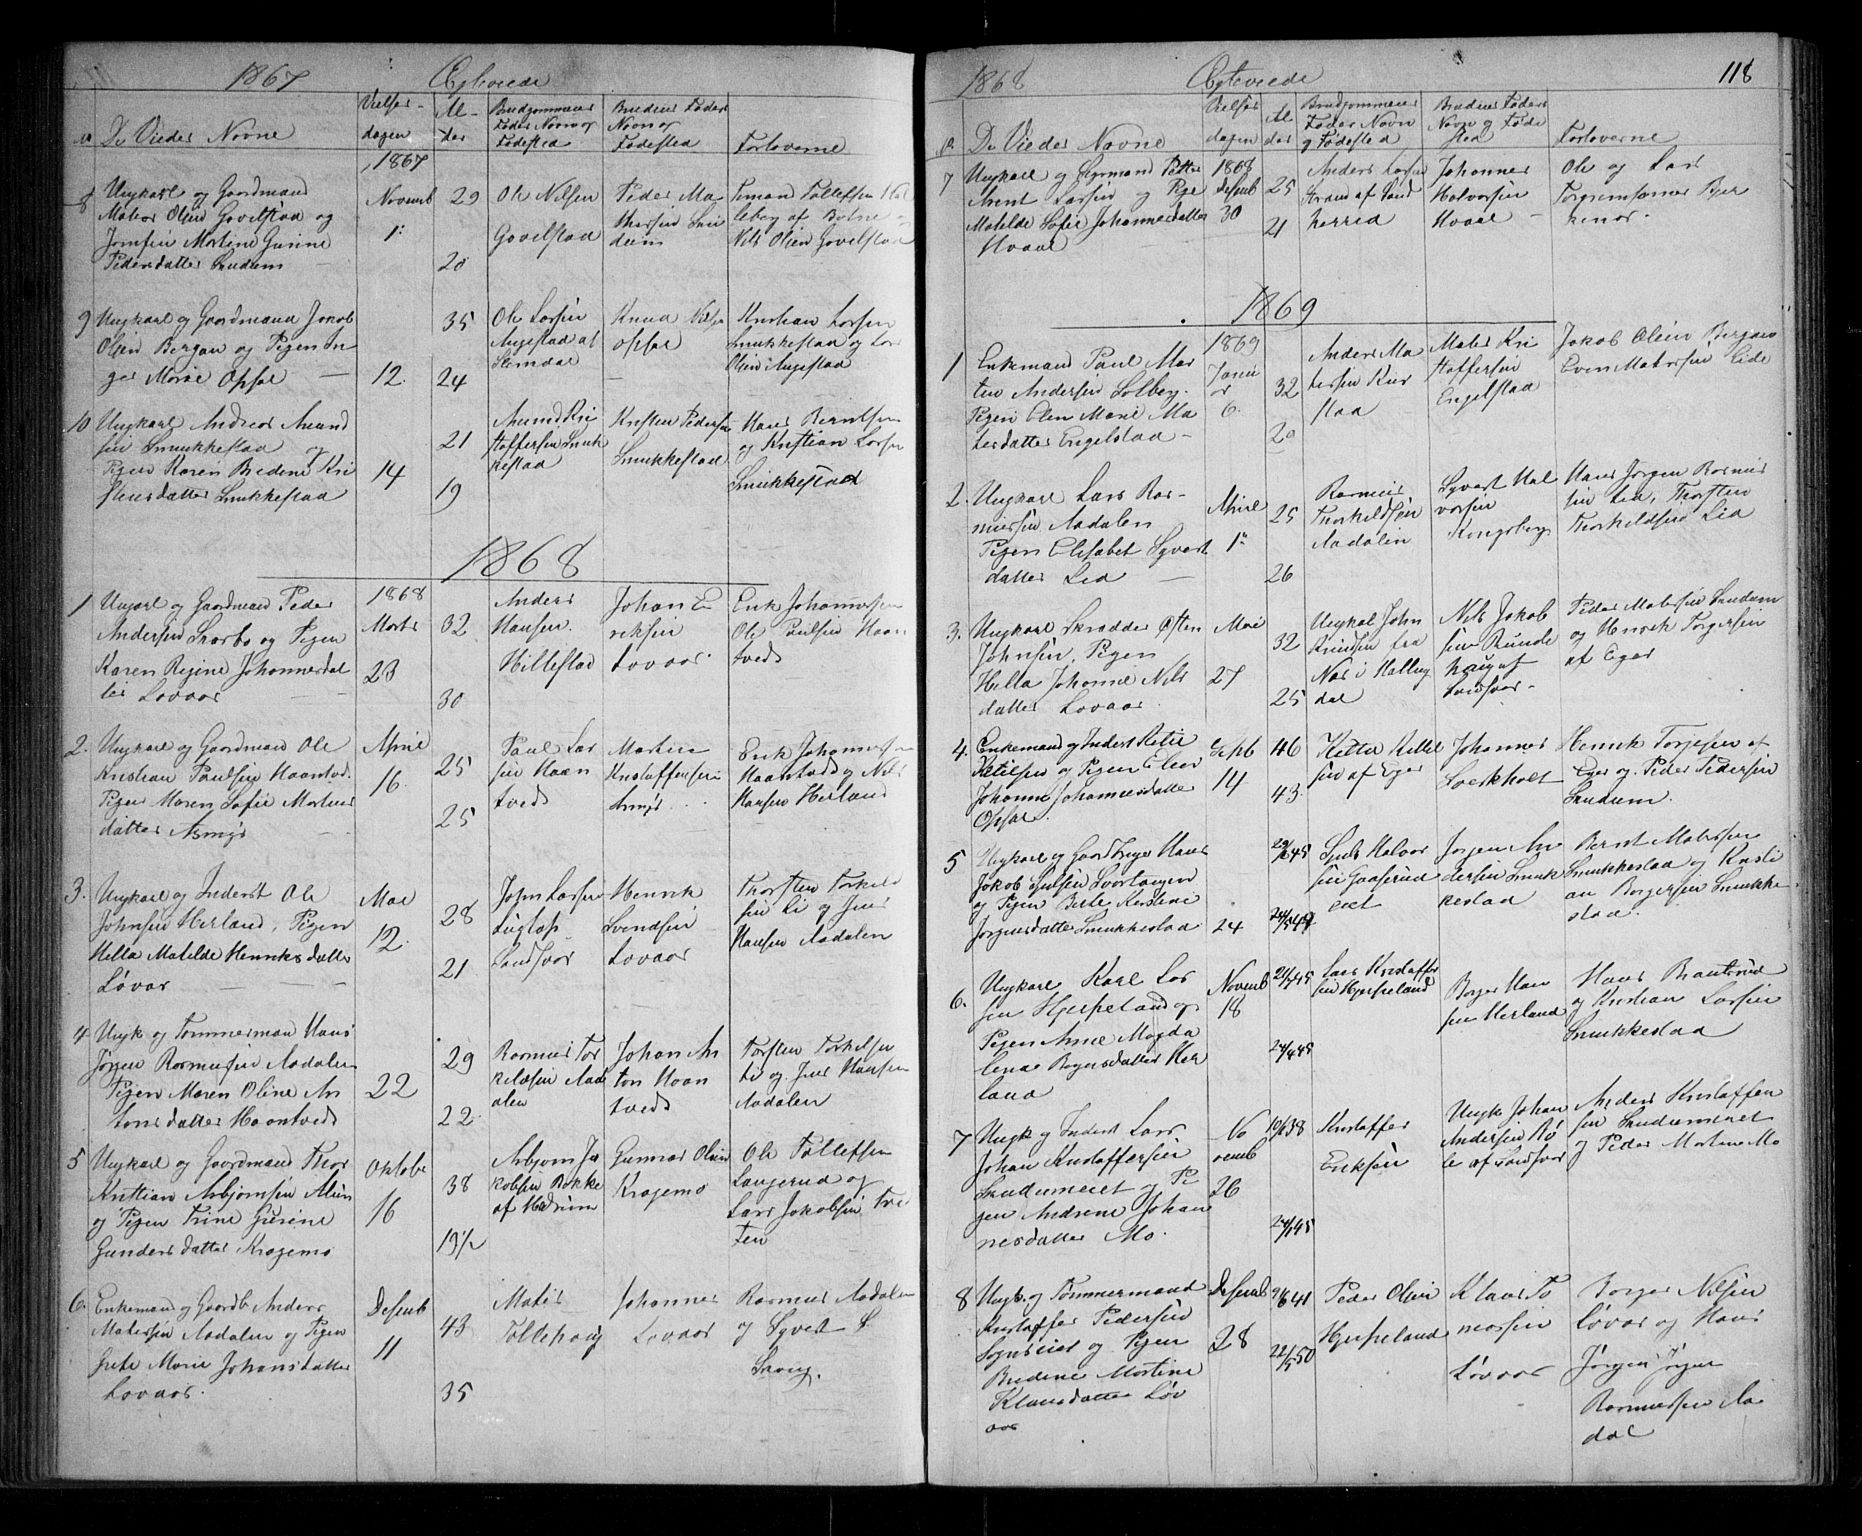 1867 Egteviede
No De Viedes Navne
Vielses-
dagen
Al-
der
Brudgommens
Fader Navn og
Fødested
Brudens Faders
Navn og
Fødested
Forloverne
1867
8 Ungkarl og Gaardmand
Mates Olsen Govelstad og
Jomfru Martine Gurine
Pedersdatter Sundum
Novemb
1:
29
20
Ole Nilsen
Govelstad
Peder Ma
thesen Sun
dum
Nils Olsen Govelstad
9 Ungkarl og Gaardmand Jakob
Olsen Bergan og Pigen In
ger Marie Opsal
12.
35
24
Ole Larsen
Augestad af
Slemdal
Knud Nilsen
Opsal
Kristian Larsen
Smukkestad og Lars
Olsen Augestad
10 Ungkarl Andreas Amund
sen Smukkestad og
Pigen Karen Bredine Kri
stensdatter Smukkestad
14
21
19
Amund Kri
stoffersen Smuk
kestad
Kristen Pedersen
Smukkestad
Hans Berntsen
og Kristian Larsen
Smukkestad
1868
1 Ungkarl og Gaardmand Peder
Andersen Skarbo og Pigen
Karen Regine Johannesdat
ter Lovaas
1868
Marts
23
32
30
Anders
Hansen
Hillestad
Johan E
riksen
Lovaas
Erik Johannesen
Ole Paulsen Haan
tveds
2. Ungkarl og Gaardmand Ole
Kristian Paulsen Haantvd.
Pigen Maren Sofie Martins
datter Asmyr
April
16
25
25
Paul Lar
sen Haan
tveds
Martin
Kristoffersen
Asmyr
Erik Johannesen
Haantveds og Nils
Hansen Herland
3. Ungkarl og Inderst Ole
Johnsen Herland, Pigen
Hella Matilde Henriksdatter
Løvas
Mai
12
28
21
John Larsen
Sandsvær
Henrik
Svendsen
Lovaas
Thorsten Torkild
sen Li og Jens
Hansen Aadalen
4 Ungk og Tømmermand Hans
Jørgen Rasmusen Aadalen
Pigen Maren Oline An
tonsdatter Haantveds
22
29
22
Rasmus Tor
kildsen Aad
alen
Johan An
ton Haan
tveds
Torsten Torkelsen
Li og Jens Hansen
Aadalen
5 Ungkarl og Gaardmand Thor
Kristian Asbjørnsen Moen
og Pigen Trine Gurine
Gundersdatter Kragemo
Oktober
16
38
19 1/2
Asbjørn Ja
kobsen Bakke
af Hedrum
Gunnar Olsen
Kragemo
Ole Tollefsen
Langerud og
Lars Jakobsen Tvei
ten
6. Enkemand og Gaardb Anders
Matesen Aadalen og Pigen
Grete Marie Johansdatter
Lovaas.
Desemb
11
43
35
Mates
Tollehaug
Johannes
Lovaas
Rasmus Aadalen
og Syvert S
Skoug.
1868 Egteviede 118
No De Viedes Navne
Vielses
dagen
Al
der
Brudgommens
Fader Navn
og Fødested
Brudens Faders
Navn og Føde
sted
Forloverne
7 Ungkarl og Styrmand Petter
Arent Larsen og Pige
Matilde Sofie Johannesdatter
Hvaal
1868
Desemb
30
25
21
Anders Larsen
Strand af Sand
herred
Johannes
Halvorsen
Hvaal
Ole og Lars
Torgrimsønner Bjer
kenes.
1869
1 Enkemand Paul Mar
tin Andersen Solberg.
Pigen Elen Marie Ma
tesdatter Engelstad
1869
Janu
ar
6.
32
20
Anders Ma
tesen Rur
stad
Mates Kri
stoffersen
Engelstad
Jakob Olsen Bergan
Even Matesen Eide
2. Ungkarl Lars Ras-
musen Aadalen
Pigen Elisabet Syvert
datter Lia
April
1:
25
26
Rasmus
Thorkildsen
Aadalen
Syvert Hal
vorsen
Kongsberg
Hans Jørgen Rasmus
sen Lia, Thorsten
Thorkildsen Lia
3. Ungkarl Skrædder Østen
Johnsen, Pigen
Hella Johanne Nils
datter Lovaas
Mai
27
32
25
Ungkal John
Knudsen fra
Næs i Halling
dal
Nils Jakob
sen Runde
haug af
Sandsvær
Peder Matesen Sundum
og Henrik Torgersen
af Eger
4. Enkemand og Inderst Ketil
Ketilsen og Pigen Elen
Johanne Johannesdatter
Opsal.
Septb
14
46
43
Kittel Kittel
sen af Eger
Johannes
Sverkholt
Henrik Torjesen af
Eger og Peder Pedersen
Sundum.
5 Ungkarl og Gaardbruger Hans
Jakob Sjulsen Svartangen
og Pigen Berte Kirstine
Jørgensdatter Smukkestad
24
Sjuls Halvor
sen Gaaserud
eiet
Jørgen An
dersen Smuk
kestad
Bernt Matesen
Smukkestad og Kristi
an Borgersen Smukke
stad.
6. Ungkarl Karl Lar
sen Hjerpeland og
Pigen Anne Magda
lena Borgersdatter Her
land
Novemb
18
Lars Kristoffer
sen Hjerpeland
Borger Han
sen Herland
Hans Brantsrud
og Kristian Larsen
Smukkestad
7 Ungk og Inderst Lars
Johan Kristoffersen
Sundumeiet og Pi
gen Andrine Johan
nesdatter Mo.
No
vemb
26
Kristoffer
Eriksen
Ungk Johan
Andersen Rø
le af Sandsvær
Anders Kristoffer
sen Sundumeiet
og Peder Martin Mo
8 Ungk. og Tømmermand
Kristoffer Pedersen
Sognseiet og Pigen
Bredine Martine
Klausdatter Løv
aas
Desemb
28
22/5 50
Peder Olsen
Hjerpeland
Klaus To
masen
Løvaas
Borger Nilsen
Løvas og Hans
Jørgen Jørgen
Rasmusen Aa
dal